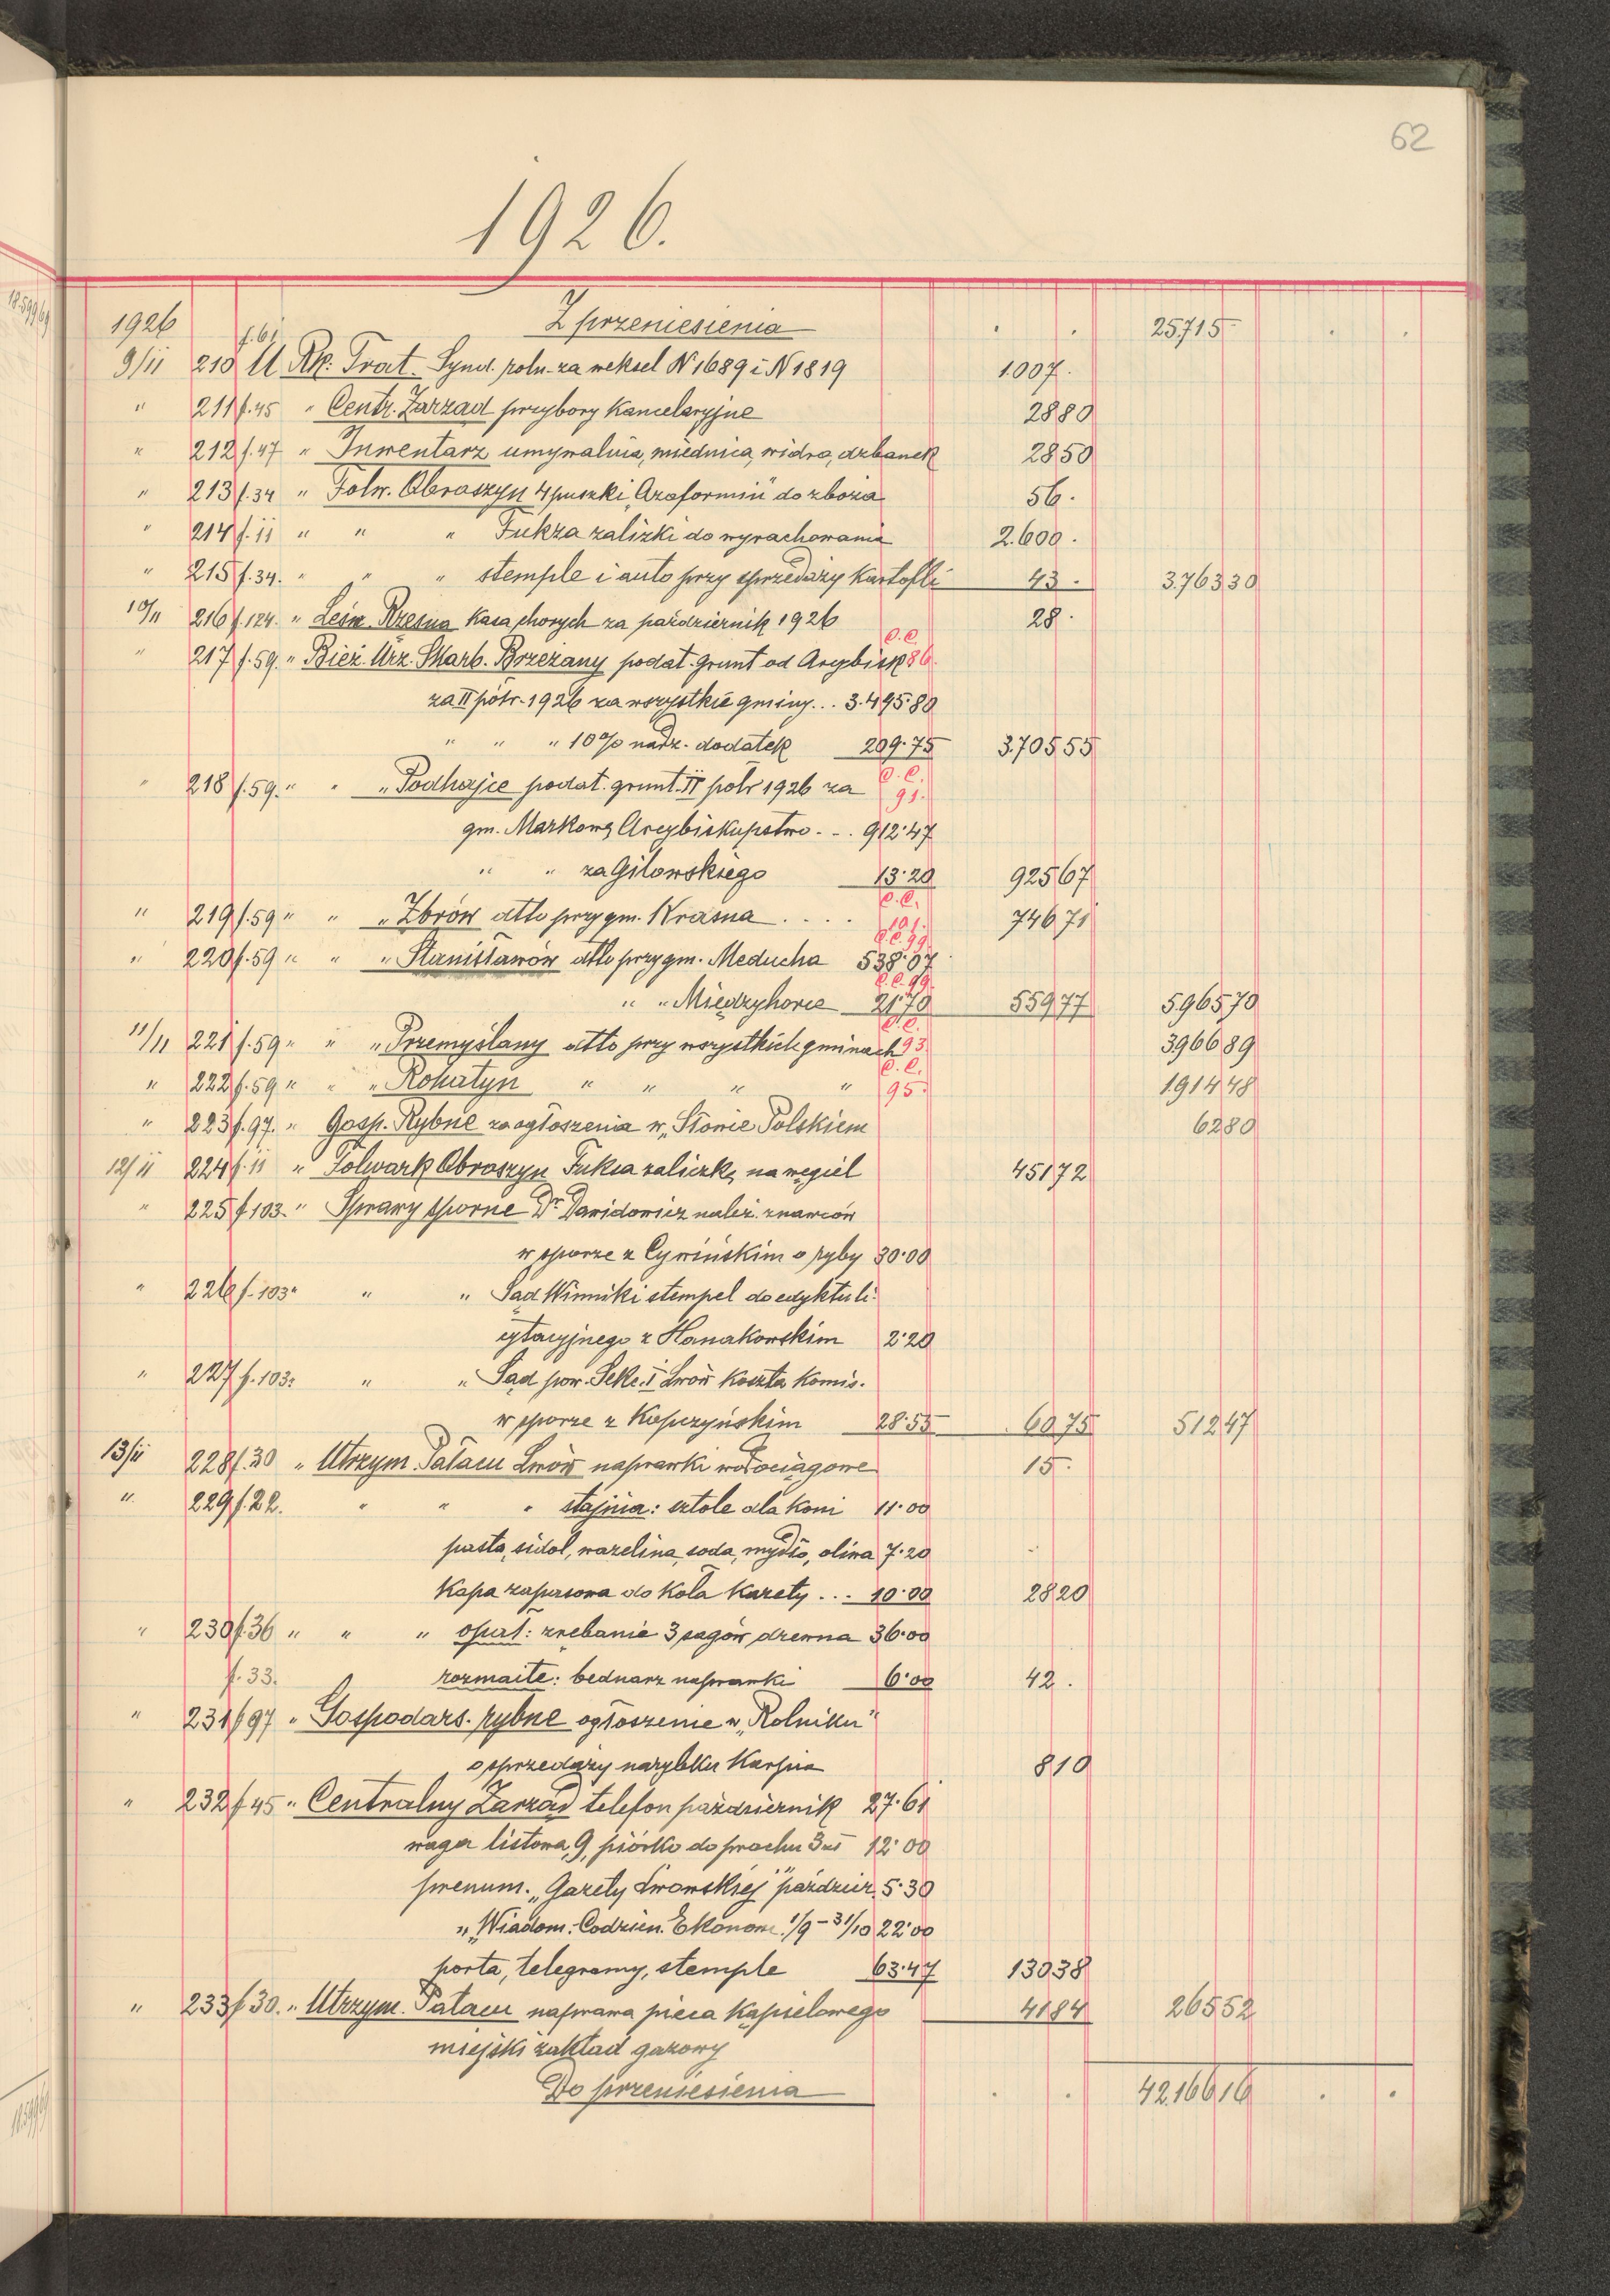 62
1926.
1926 Z przeniesienia . . 25.715 . .
9/11 210 f.61 U Rk: Trat. Synd. roln. za weksel N 1689 i N 1819 1.007.
" 211 f.45 " Centr. Zarzad przybory kancelaryjne 28 80
" 212 f.47 " Inwentarz umywalnia, miednica, widro, dzbanek 28 50
" 213 f.34 " Folw. Obroszyn 4 puszki „Azoformin" do zboża 56.
" 214 f.11 " " " Fuksa zalizki do wyrachowania 2.600.
" 215 f.34. " " " stemple i auto przy sprzedaży kartofli 43. 3.763 30
10/11 216 f.124. " Leśn. Rzesna Kasa chorych za październik 1926 28.
" 217 f.59. " Bież. Urz. Skarb. Brzeżany podat. grunt od Arcybisk p.c. 86.
za II półr. 1926 za wszystkie gminy... 3.495.80
" " " 10% nadz. dodatek 209.75 3.705 55
" 218 f.59. " " " Podhajce podat. grunt. II półr 1926 za p.c. 91.
gm. Markowa Arcybiskupstwo... 912.47
" " za Gilowskiego 13.20 925 67
" 219 f.59 " " " Zbrów dtto przy gm. Krasna .... p.c. 101. 746 71
" 220 f.59 " " " Stanisławów dtto przy gm. Meducha p.c. 99 538.07
" " Międzyhorce p.c. 99. 21.70 559 77 5.965 70
11/11 221 f.59 " " " Przemyślany dtto przy wszystkich gminach p.c. 93. 3.966 89
" 222 f.59 " " " Rohatyn " " " " p.c. 95. 1.914 48
" 223 f.97. " Gosp. Rybne za ogłoszenia w „Słowie Polskiem 62 80
12/11 224 f.11 " Folwark Obroszyn Fuksa zaliczkę na węgiel 451 72
" 225 f.103. " Sprawy sporne Dr Dawidowicz należ. znawców
w sporze z Cywińskim o ryby 30.00
" 226 f.103 " " " Sąd Winniki stempel do edyktu li-
cytacyjnego z Hanakowskim 2.20
" 227 f.103 " " " Sąd pow. Sekc. I Lwów koszta komis.
w sporze z Kopczyńskim 28.55 60 75 512 47
13/11 228 f.30 " Utrzym. Pałacu Lwów naprawki wodociągowe 15.
" 229 f.22. " " " stajnia: sztole dla koni 11.00
pasta, sidol, wazelina, soda, mydło, oliwa 7.20
Kapa zapasowa do koła karety ... 10.00 28 20
" 230 f.36 " " " opał: zrebanie 3 sagów drzewna 36.00
f.33. rozmaite: bednarz naprawki 6.00 42.
" 231 f 97 " Gospodars. rybne ogłoszenie w „Rolniku"
o sprzedaży narybku karpia 8 10
" 232 f 45 " Centralny Zarząd telefon październik 27.61
waga listowa 9, piórko do prochu 3 zł 12.00
prenum. „Gazety Lwowskiej" paździer. 5.30
" „Wiadom. Codzien. Ekonom. 1/9 - 31/10 22.00
porta, telegramy, stemple 63.47 130 38
" 233 f 30. " Utrzym. Pałacu naprawa pieca kąpielowego 41 84 265 52
miejski zakład gazowy
Do przeniesienia . . 42.166 16 . .